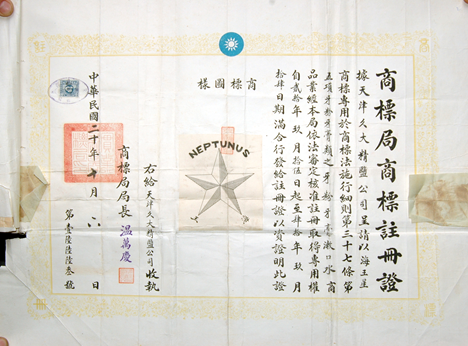 商標局商標註冊證
據天津久大精鹽公司呈請以海王星
商標專用於商標法施行細則第三十七條第
五項牙粉牙膏類之牙粉牙膏漱口水商
品業經本局依法審定核准註冊取得專用權
自貳拾年玖月拾伍日起至肆拾年玖月
拾肆日期滿合行發給註冊證以資證明此證
商標圖樣
NEPTUNUS
右給天津久大精鹽公司收執
商標局局長溫萬慶
中華民國二十年十月六日
第壹陸陸陸叁號